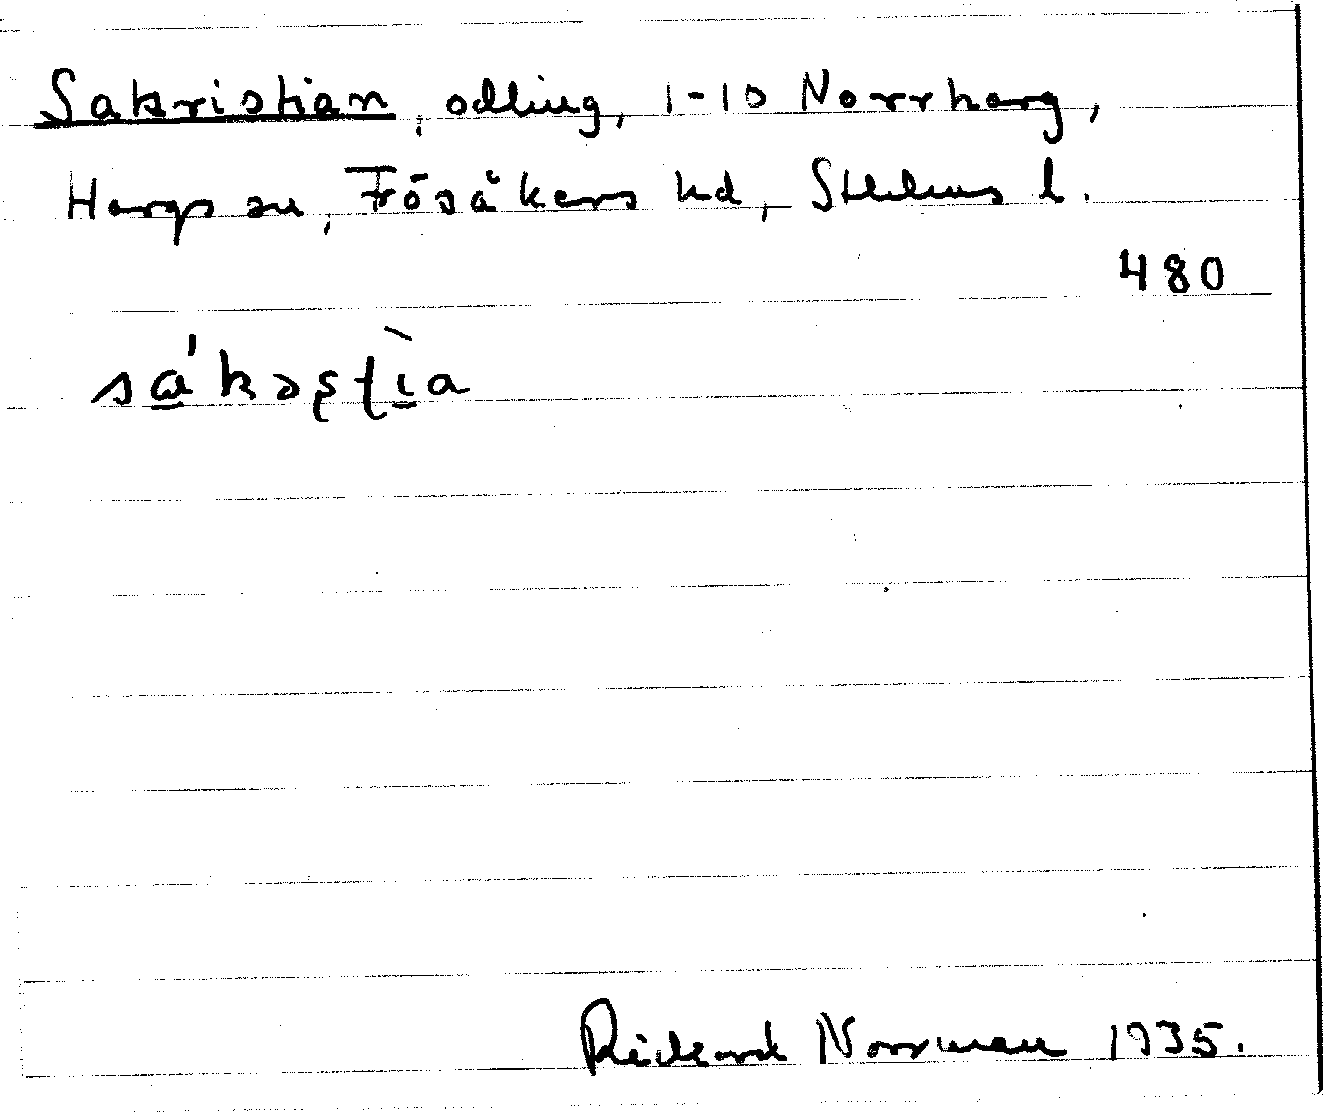 Sakristian, odling, 1-10 Norrharg,
Hargs sn, Frösåkers hd, Sthlms l.
480
Rickard Norrman 1935.